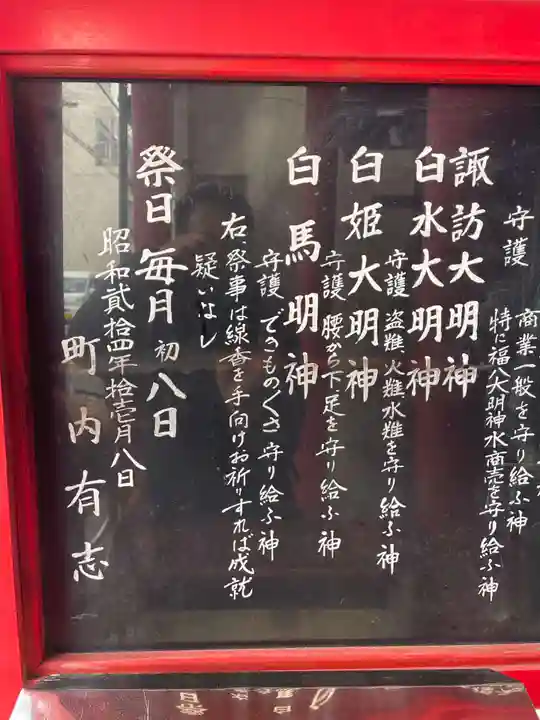 守護 商業一般を守り給ふ神
特に福八大明神水商売を守り給ふ神
諏訪大明神
白水大明神
守護 盗難、火難水難を守り給ふ神
白姫大明神
守護 腰から下足を守り給ふ神
白馬明神
守護 できものくさ守り給ふ神
右、祭事は線香を手向けお祈りすれば成就
疑いなし
祭日毎月初八日
昭和貳拾四年拾壱月八日
町内有志